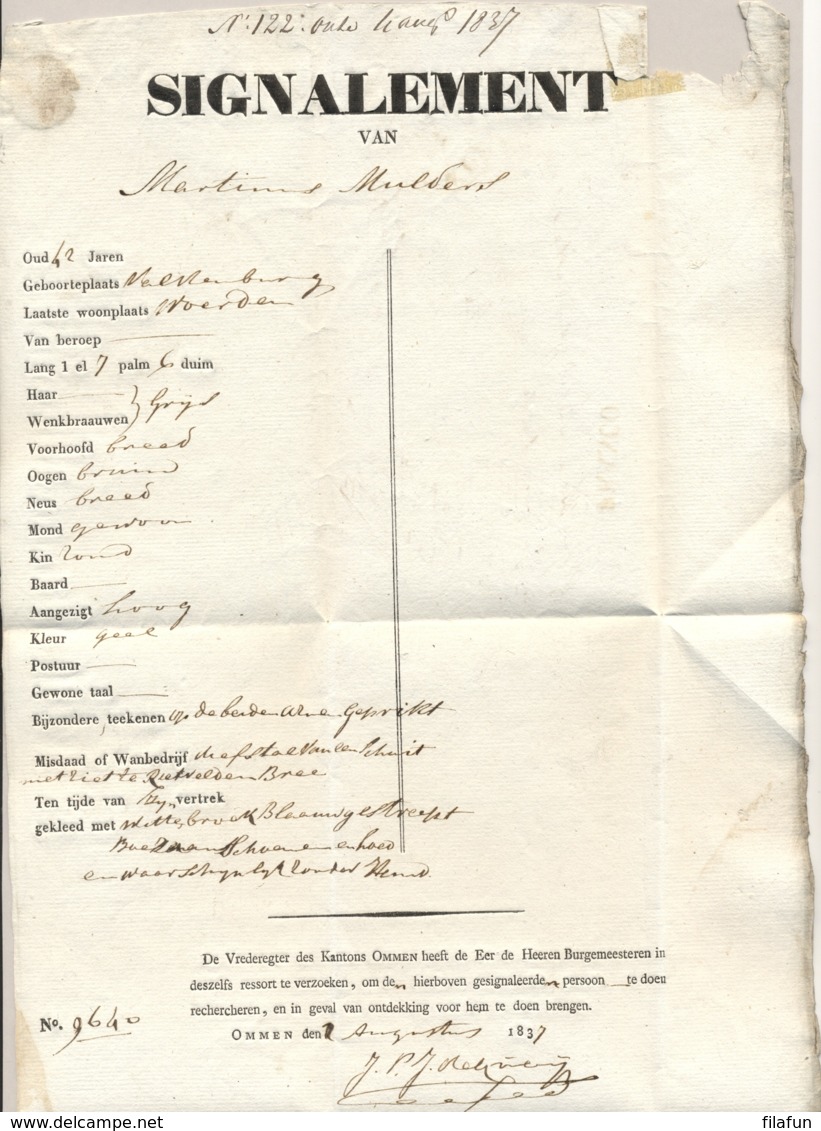 No. 122. 1837
SIGNALEMENT
VAN
Martinus Mulders
Oud 42 Jaren
Geboorteplaats Valkenburg
Laatste woonplaats Woerden
Van beroep
Lang 1 el 7 palm 6 duim
Haar
Wenkbraauwen } Grijs
Voorhoofd breed
Oogen bruin
Neus breed
Mond gewoon
Kin rond
Baard
Aangezigt hoog
Kleur geel
Postuur
Gewone taal
Bijzondere teekenen op de beide armen Geprikt
Misdaad of Wanbedrijf diefstal van een Schuit
met riet te
Ten tijde van zijn vertrek
gekleed met witte broek Blaauwgestreept
Schoenen en hoed
en waarschynlyk zonder Hemd.
De Vrederegter des Kantons OMMEN heeft de Eer de Heeren Burgemeesteren in
deszelfs ressort te verzoeken, om den hierboven gesignaleerden persoon te doen
rechercheren, en in geval van ontdekking voor hem te doen brengen.
No. 9640
OMMEN den 2 Augustus 1837
delcampe.net
filafun